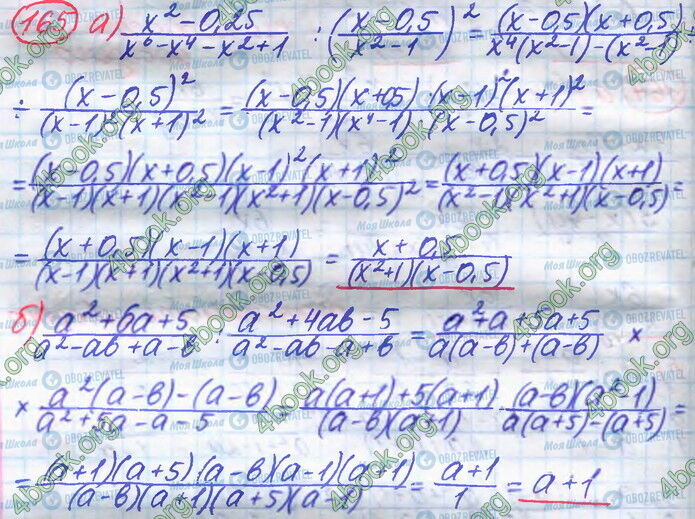 165 а) (x² − 0,25)/(x⁶ − x⁴ − x² + 1) : ((x − 0,5)/(x² − 1))² = ((x − 0,5)(x + 0,5))/(x⁴(x² − 1) − (x² − 1)) :
÷ (x − 0,5)²/((x − 1)²(x + 1)²) = ((x − 0,5)(x + 0,5)(x − 1)²(x + 1)²)/((x² − 1)(x⁴ − 1)(x − 0,5)²) =
= ((x − 0,5)(x + 0,5)(x − 1)²(x + 1)²)/((x − 1)(x + 1)(x² − 1)(x² + 1)(x − 0,5)²) = ((x + 0,5)(x − 1)(x + 1))/((x² − 1)(x² + 1)(x − 0,5)) =
= ((x + 0,5)(x − 1)(x + 1))/((x − 1)(x + 1)(x² + 1)(x − 0,5)) = (x + 0,5)/((x² + 1)(x − 0,5))
б) (a² + 6a + 5)/(a² − ab + a − b) : (a² + 4ab − 5)/(a² − ab − a + b) = (a² + a + 5a + 5)/(a(a − b) + (a − b)) ×
× (a²(a − b) − (a − b))/(a² + 5a − a − 5) = (a(a + 1) + 5(a + 1))/((a − b)(a + 1)) · ((a − b)(a² − 1))/(a(a + 5) − (a + 5)) =
= ((a + 1)(a + 5)(a − b)(a − 1)(a + 1))/((a − b)(a + 1)(a + 5)(a − 1)) = (a + 1)/1 = a + 1
4book.org
Моя Школа
OBOZREVATEL